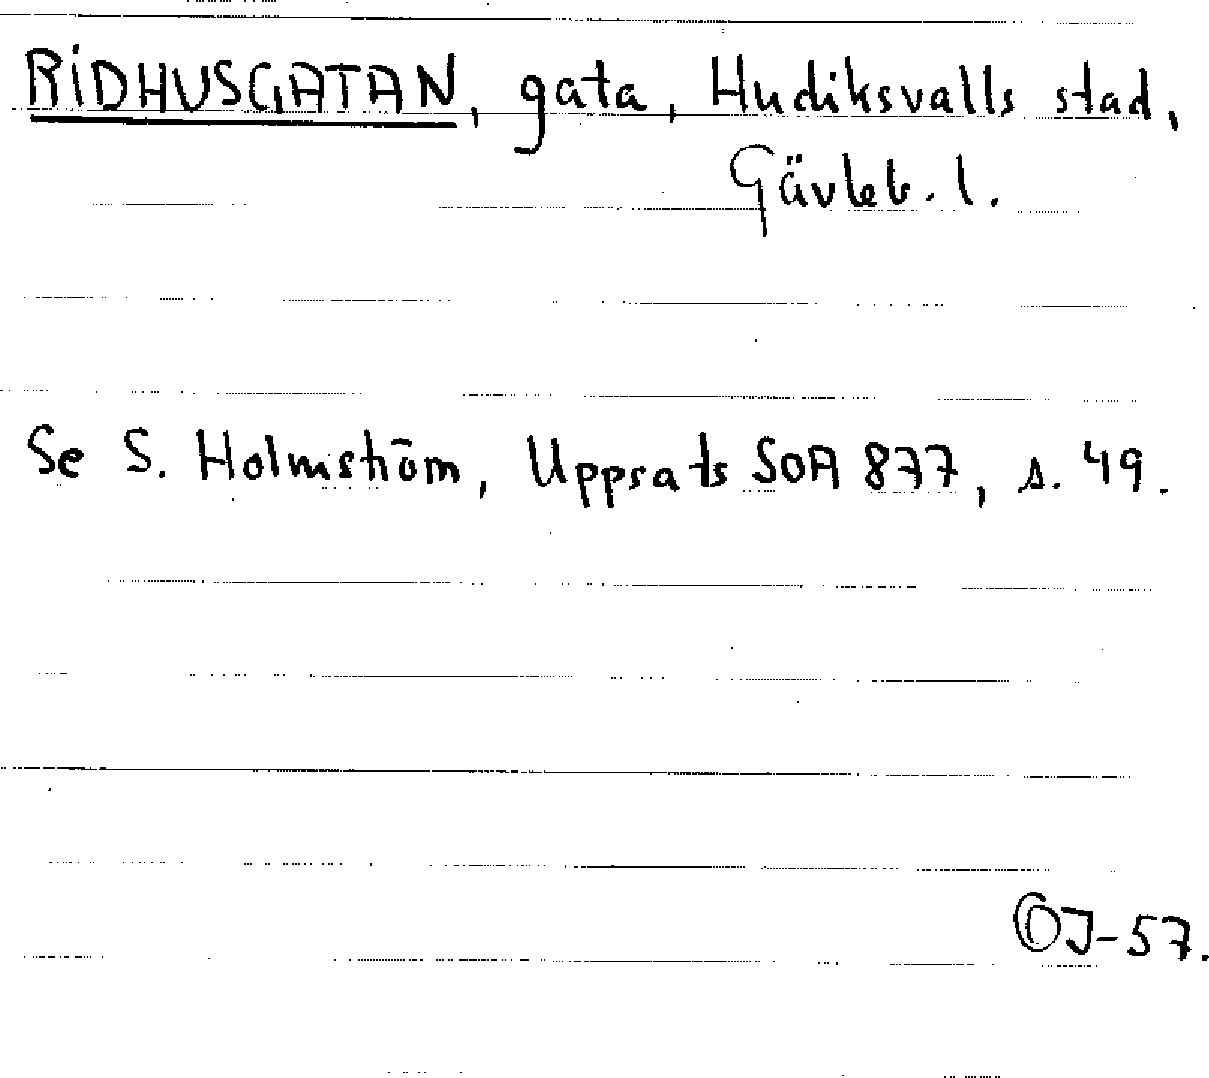 RIDHUSGATAN, gata, Hudiksvalls stad,
Gävleb. l.
Se S. Holmström, Uppsats SOA 877, s. 49.
OJ-57.